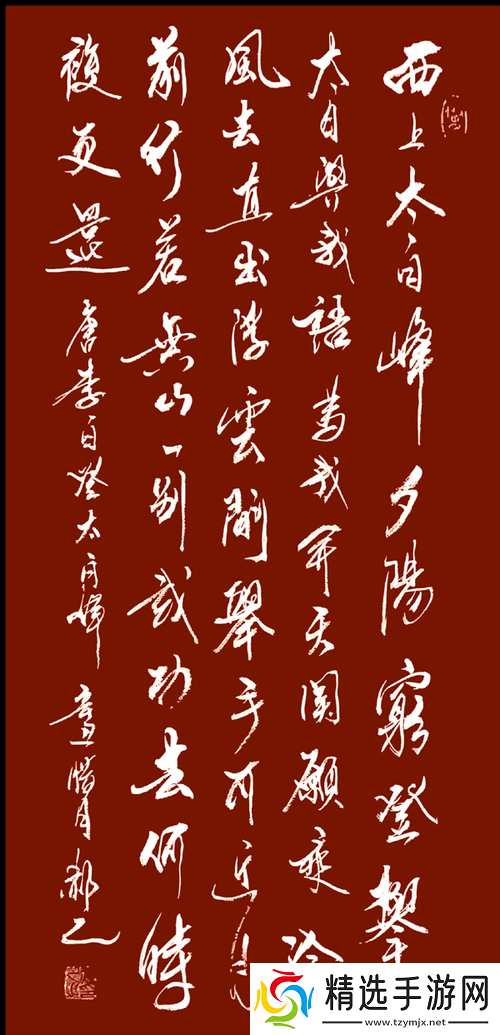 西上太白峰夕陽窮登攀
太白與我語為我開天關願乘泠
風去直出浮雲間舉手可近月
前行若無山一別武功去何時
復更還 唐李白登太白峰 臘月
精选手游网
www.tzymjx.net